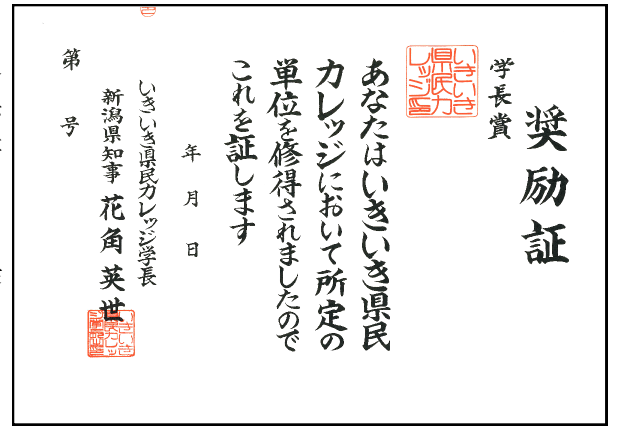 奨励証
学長賞
いきいき
県民カ
レッジ印
あなたはいきいき県民
カレッジにおいて所定の
単位を修得されましたので
これを証します
年 月 日
いきいき県民カレッジ学長
新潟県知事 花角英世
第 号